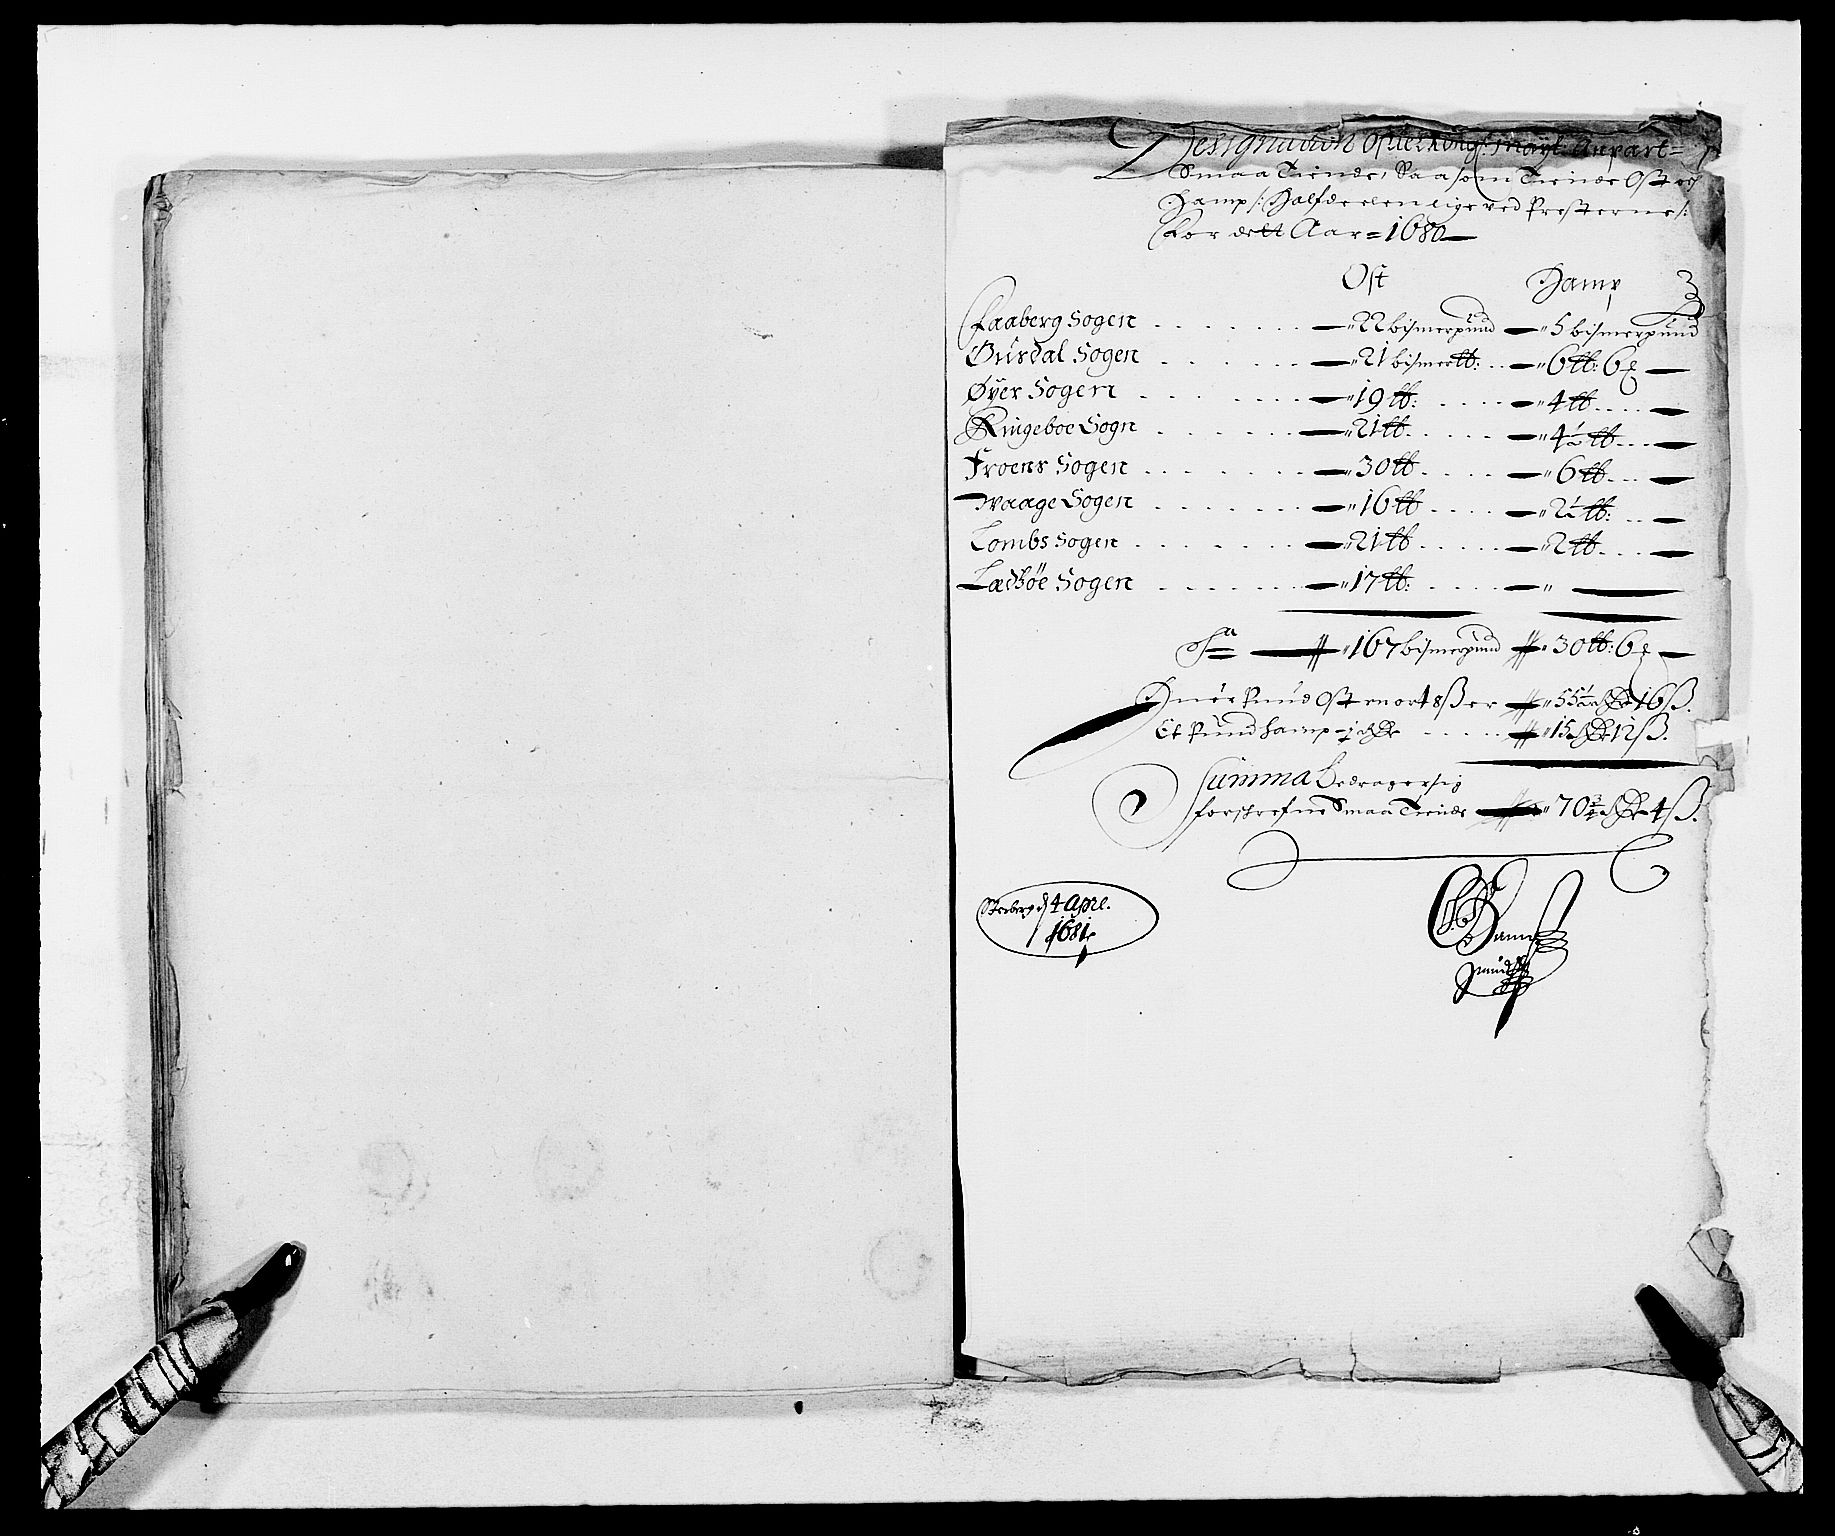 Designation ofuer Kong: Mayt: Anpart=
Smaa Tiende, Saasom Tiende Ost og
Hamp /: Halfdeelen lige ved Presterne :/
For dett Aar= 1680
Ost Hamp
Faaberg Sogen . . . . . . . „ 22 bismerpund „ 5 bismerpund
Gusdal Sogen . . . . . . „ 21 bismer℔: . . „ 6 ℔: 6
Øyer Sogen . . . . . . . „ 19 ℔: . . . . „ 4 ℔ . . . .
Ringeboe Sogn . . . . . . „ 21 ℔ . . . . . „ 4½ ℔ . . .
Froens Sogen . . . . . . . „ 30 ℔ . . . . „ 6 ℔ . . .
Waage Sogen . . . . . . . „ 16 ℔ . . . . „ 2½ ℔: . . .
Lombs Sogen . . . . . . . „ 21 ℔ . . . . . „ 2 ℔ . . .
Lædsøe Sogen . . . . . . „ 17 ℔: . . . . . „
Sa „ 167 bismerpund „ 30 ℔: 6
Huer Pund Ost 8 ß er „ 55½ Rdr 16 ß.
Et Pund hamp - j Rdr . . . . . „ 15 Rdr 12 ß.
Summa Bedrager sig
forschrefne Smaa Tiende „ 70¾ Rdr 4 ß.
d 4 Apre.
1681